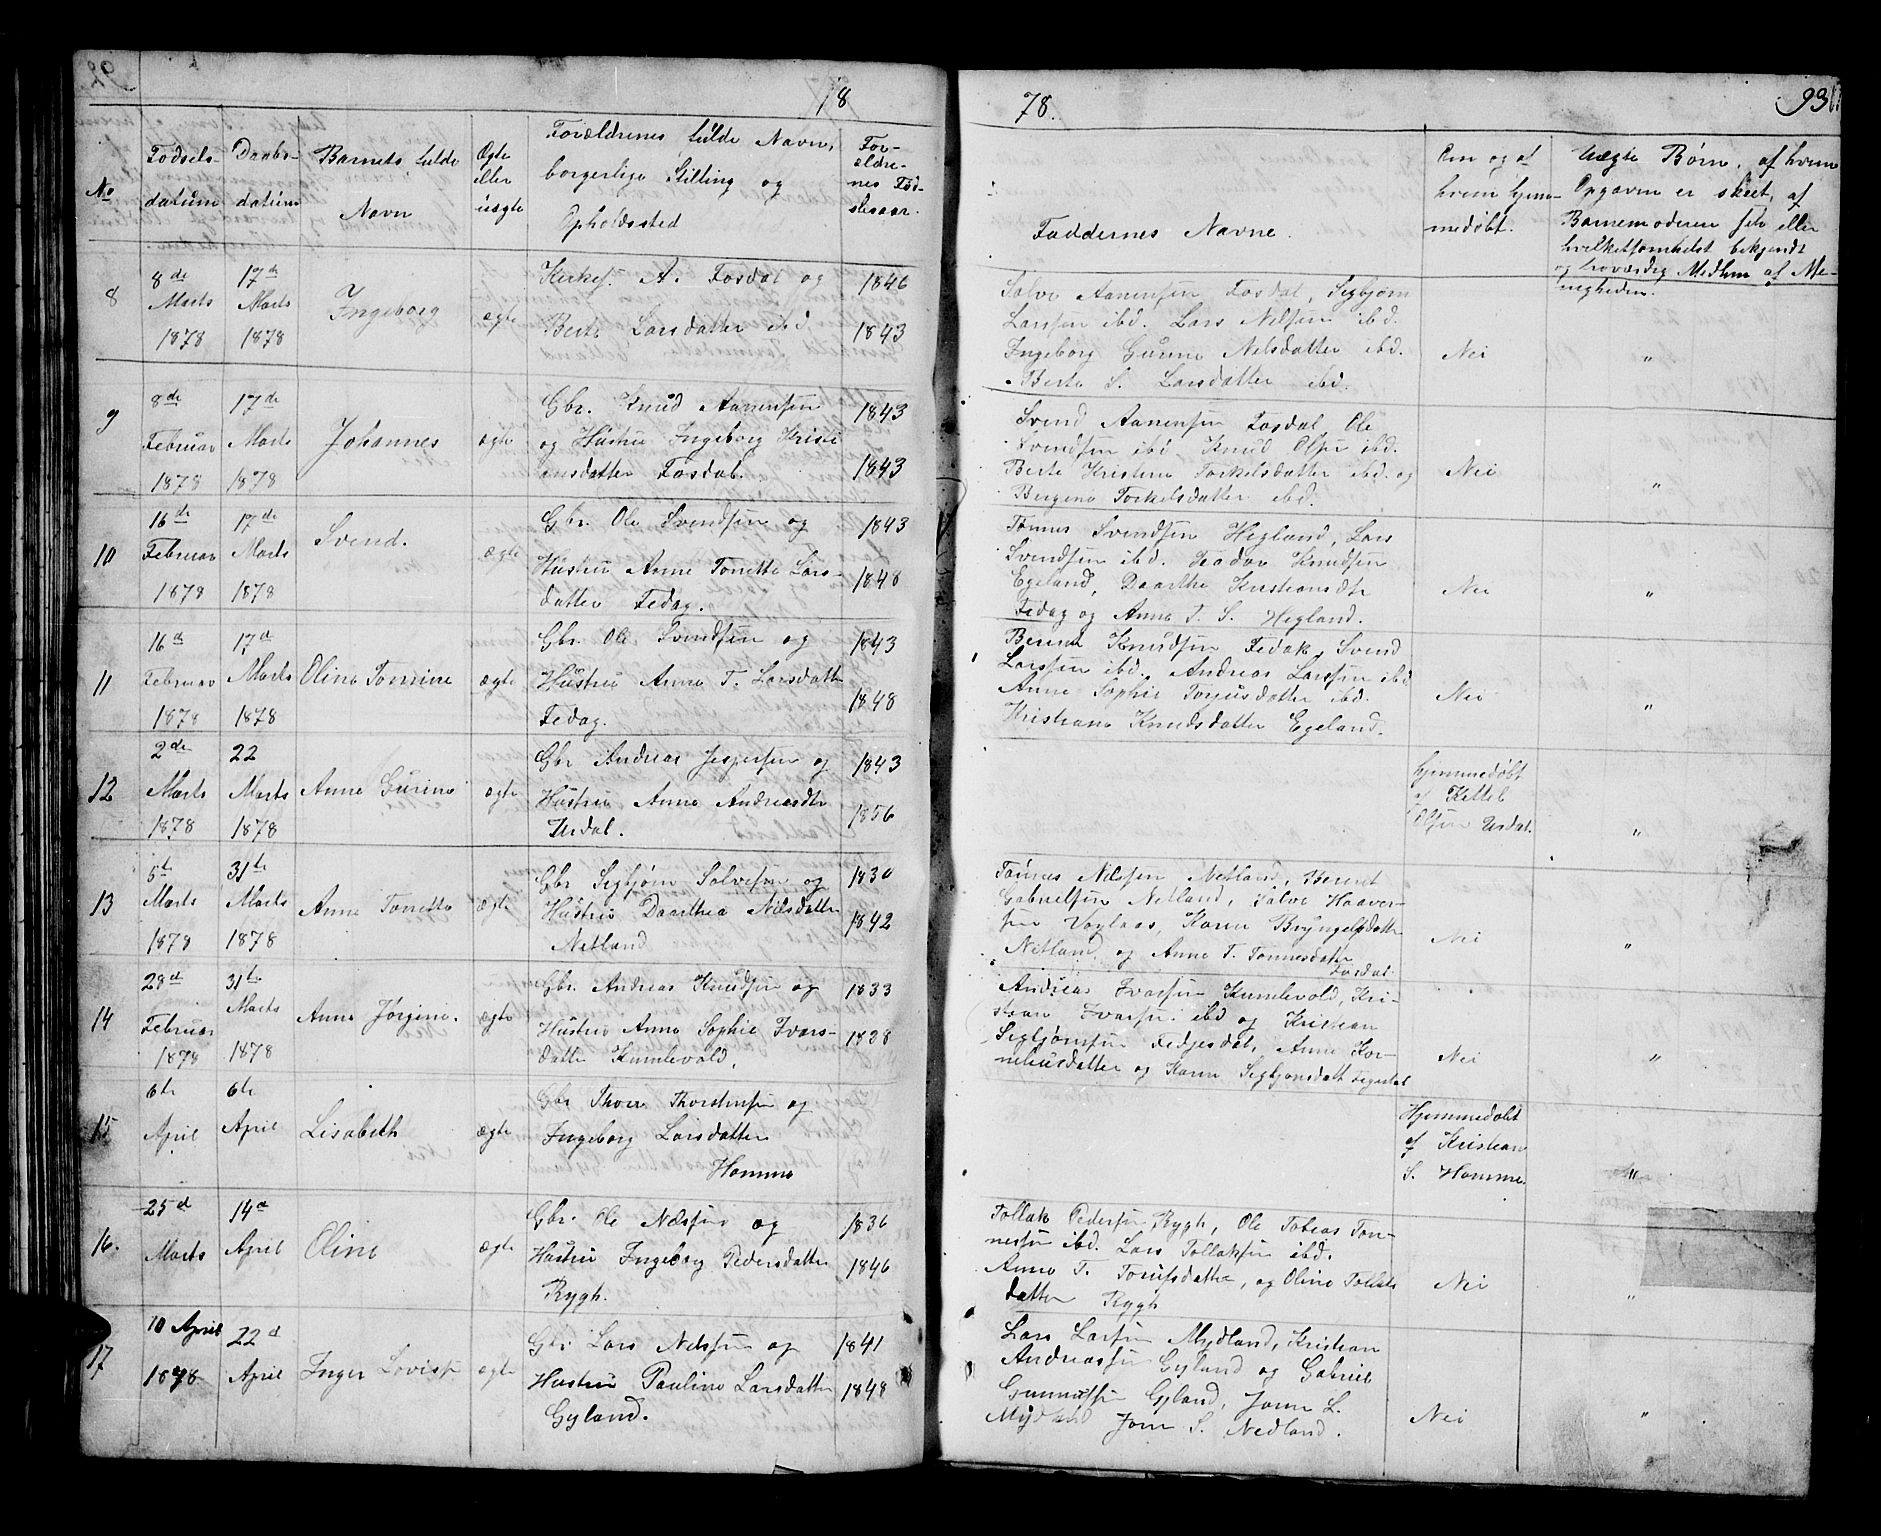 18
78.
93
No
Fødsels-
datum
Daabs-
datum
Barnets fulde
Navn
Ægte
eller
uægte
Forældrenes fulde Navn,
borgerlige Stilling og
Opholdssted
For-
ældre-
nes Fød-
selsaar.
Faddernes Navne.
Om og af
hvem hjem-
medøbt.
Uægte Børn, af hvem
Opgaven er skeet, af
Barnemoderen selv eller
hvilketsomhelst bekjendt
og troværdig Medlem af Me-
nigheden.
8
8de
Marts
1878
17de
Marts
1878
Ingeborg
ægte
Kirkes. A. Fosdal og
Berte Larsdatter ibd
1846
1843
Salve Aanensen Fosdal, Sigbjørn
Larssen ibd. Lars Nilsen ibd.
Ingeborg Gurine Nilsdatter ibd.
Berte S. Larsdatter ibd.
Nei
"
9
8de
Februar
1878
17de
Marts
1878
Johannes
ægte
Gbr. Knud Aanensen
og Hustru Ingeborg Kristi
ansdatter Fosdal.
1843
1843
Svend Aanensen Fosdal, Ole
Svendsen ibd, Knud Olsen ibd.
Berte Kristine Torkelsdatter ibd. og
Bergine Torkelsdatter ibd.
Nei
"
10
16de
Februar
1878
17de
Marts
1878
Svend.
ægte
Gbr. Ole Svendsen og
Hustru Anne Tonette Lars-
datter Fedag.
1843
1848
Tønnes Svendsen Hegland, Lars
Svendsen ibd. Teodor Knudsen
Egeland, Daarthe Kristiansdtr
Fedag og Anne T. S. Hegland.
Nei
"
11
16d
Februar
1878
17d
Marts
1878
Oline Tomine
ægte
Gbr. Ole Svendsen og
Hustru Anne T. Larsdatter
Fedag.
1843
1848
Berent Knudsen Fedak, Svend
Larssen ibd. Andreas Larssen ibd
Anne Sophie Torjusdatter ibd.
Kristiane Knudsdatter Egeland.
Nei
"
12
2de
Marts
1878
22
Marts
1878
Anne Gurine
ægte
Gbr Andreas Jespersen og
Hustru Anne Andreasdtr
Urdal.
1843
1856
hjemmedøbt
af Kittel
Olsen Urdal.
"
13
5te
Marts
1878
31te
Marts
1878
Anne Tonette
ægte
Gbr Sigbjørn Salvesen og
Hustru Daarthea Nilsdatter
Netland
1830
1842
Tønnes Nilssen Netland, Berent
Gabrielsen Netland, Salve Haaver-
sen Voglaas, Karen Bryngelsdatter
Netland, og Anne T. Tønnesdatter
Fosdal.
Nei
"
14
28d
Februar
1878
31te
Marts
1878
Anne Jørgine.
ægte
Gbr. Andreas Knudsen og
Hustru Anne Sophie Ivars-
datter Kumlevold.
1833
1838
Andreas Ivarsen Kumlevold, Kri-
stian Ivarsen ibd og Kristian
Sigbjørnsen Fedjesdal, Anne Kor-
neliusdatter og Karen Sigbjønsdatt
Nei
"
15
6te
April
6te
April
Lisabeth
ægte
Gbr Thore Thorstensen og
Ingeborg Larsdatter
Homme
Hjemmedøbt
af Kristian
S. Homme.
"
16.
25d
Marts
14d
April
Oline
ægte
Gbr. Ole Nilsen og
Hustru Ingeborg Pedersdatter
Rygh.
1836
1846
Tollak Pedersen Rygh, Ole Tobias Ton-
nesen ibd. Lars Tollaksen ibd.
Anne T. datter, og Oline Tollaks
datter Rygh
Nei
"
17
10 April
1878
22d
April
Inger Lovise
ægte
Gbr Lars Nilsen og
Hustru Pauline Larsdatter
Gyland.
1841
1848
Lars Larsen Mydland, Kristian
Andreassen Gyland og Gabriel
Gunnufsen Gyland, Jonn L.
Mydland Jonn S. Nedland.
Nei
"